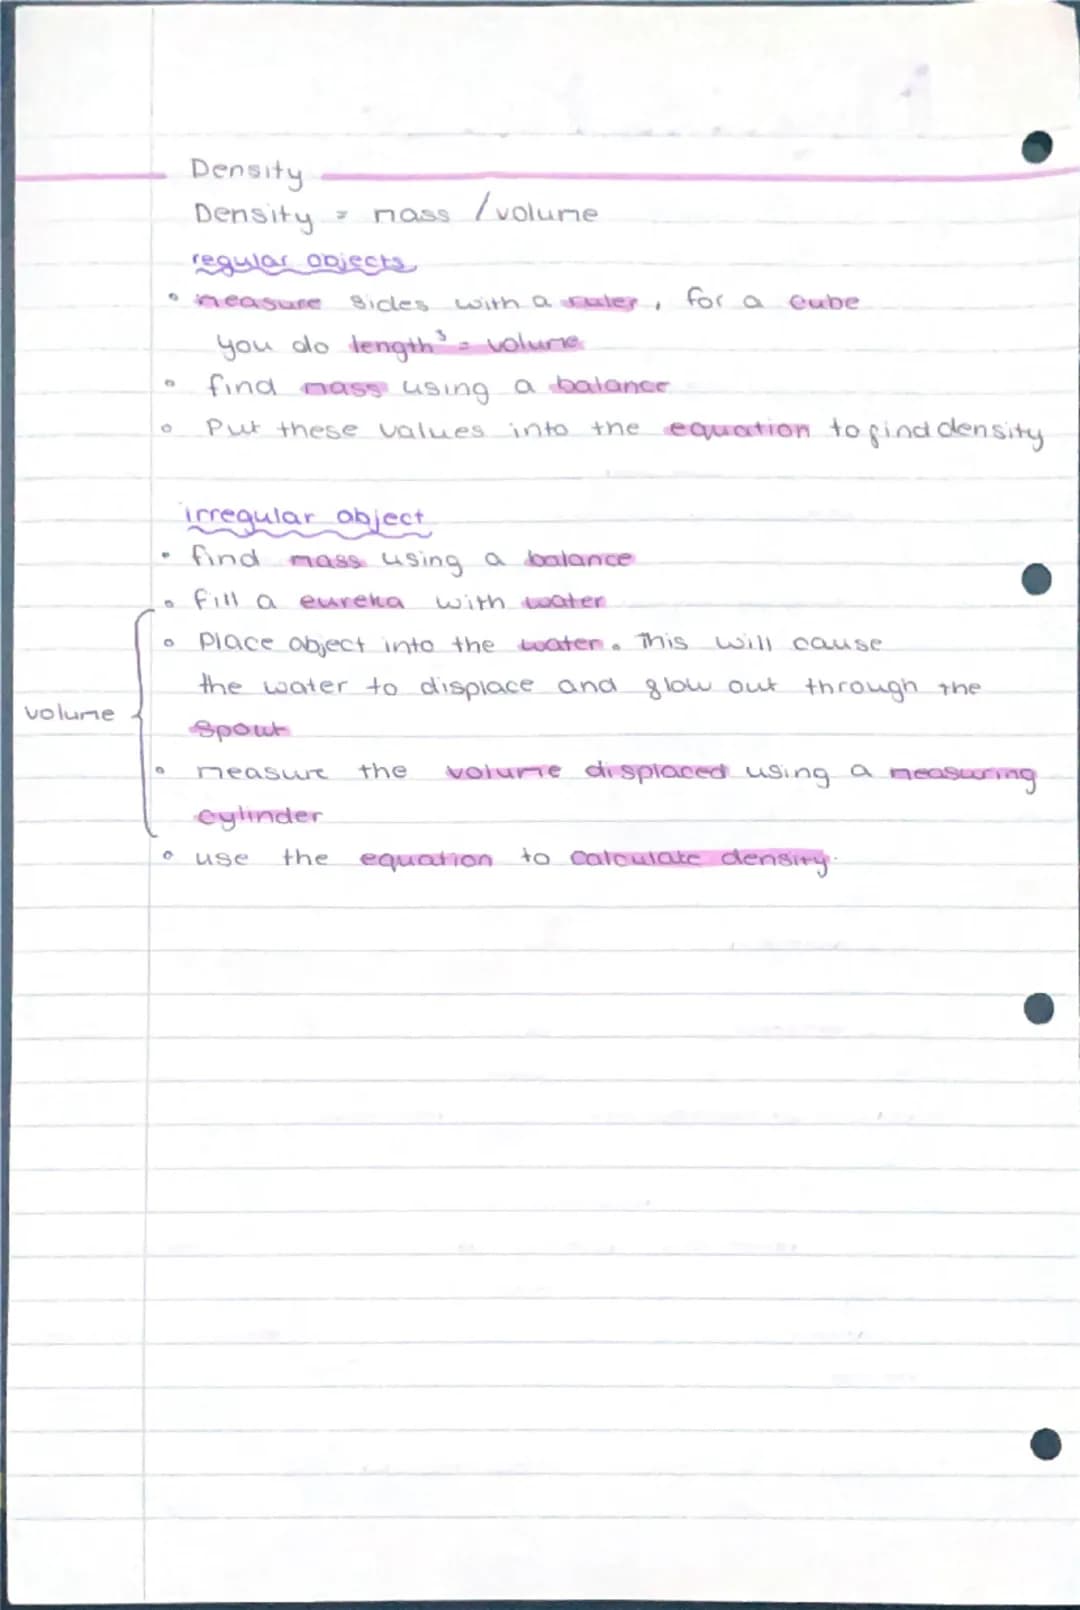 Density
Density = mass / volume
regular objects
• measure sides with a ruler, for a cube
you do length³ = volume
• find mass using a balance
• Put these values into the equation to find density
irregular object
• find mass using a balance
• fill a eureka with water
• Place object into the water. This will cause
the water to displace and flow out through the
volume
spout
• measure the volume displaced using a measuring
cylinder
• use the equation to calculate density.